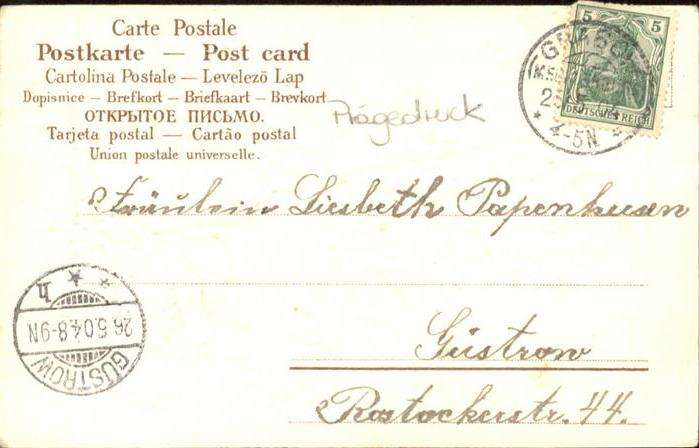 Carte Postale
Postkarte — Post card
Cartolina Postale — Levelező Lap
Dopisnice — Brefkort — Briefkaart — Brevkort
ОТКРЫТОЕ ПИСЬМО.
Tarjeta postal — Cartão postal
Union postale universelle.
Prägedruck
5 5
DEUTSCHES REICH
* 4-5N *
Fräulein Liesbeth Papenhusen
Güstrow
Rostockerstr. 44.
* * h
26.5.04.8-9N
GÜSTROW